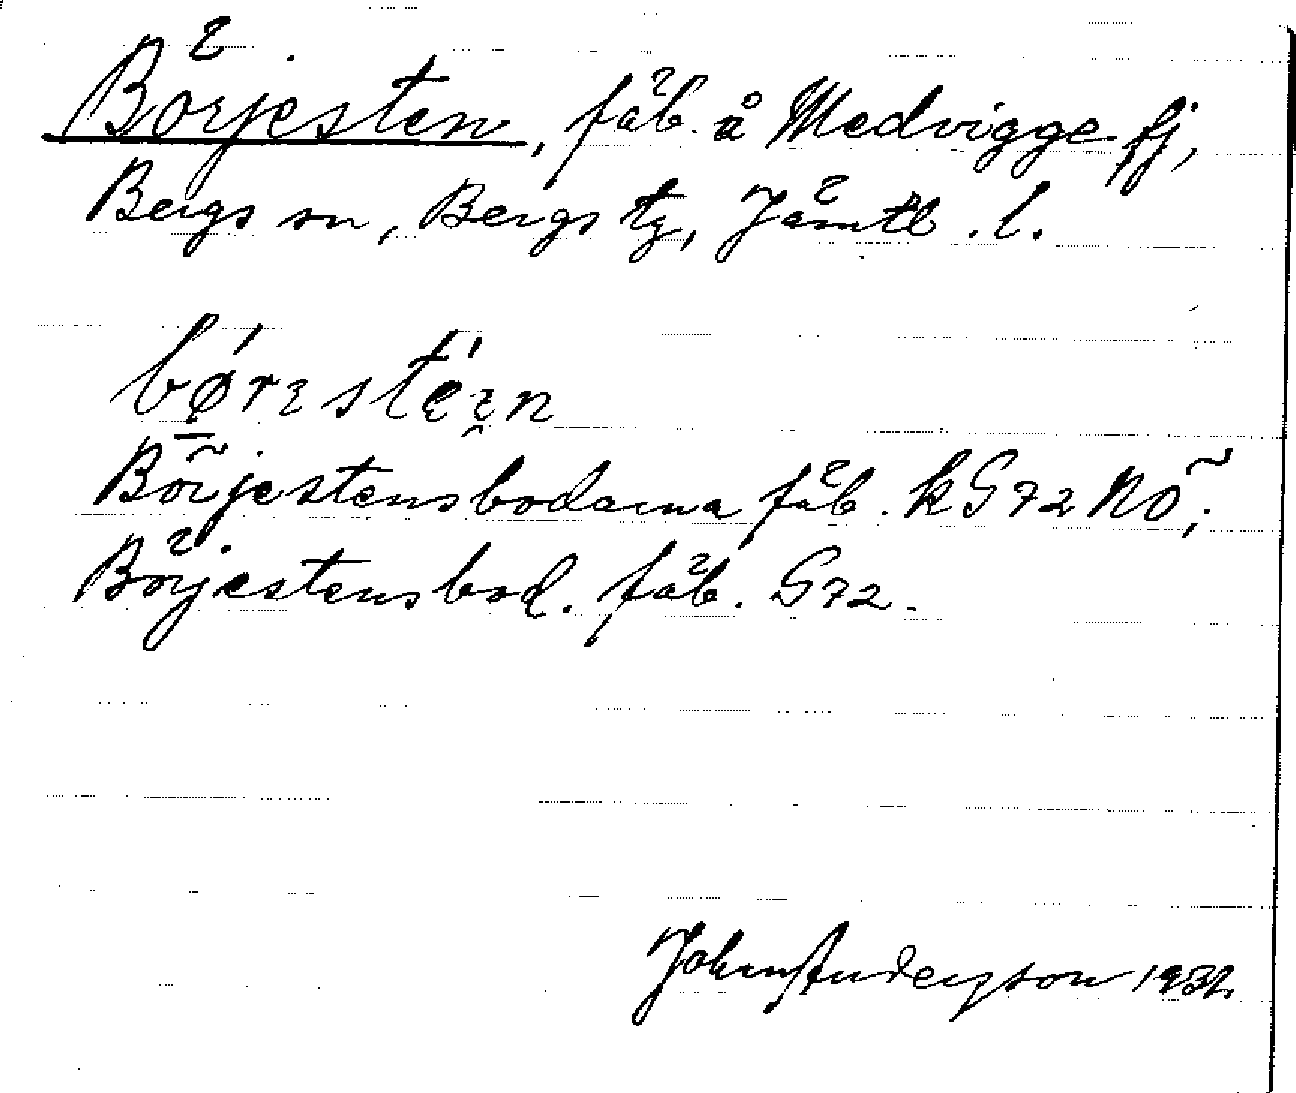 Börjesten, fäb. å Medvigge fj,
Bergs sn, Bergs tg, Jämtl. l.
Börjestensbodarna fäb. k G72 NÖ;
Börjestensbod. fäb. G72.
John Anderson